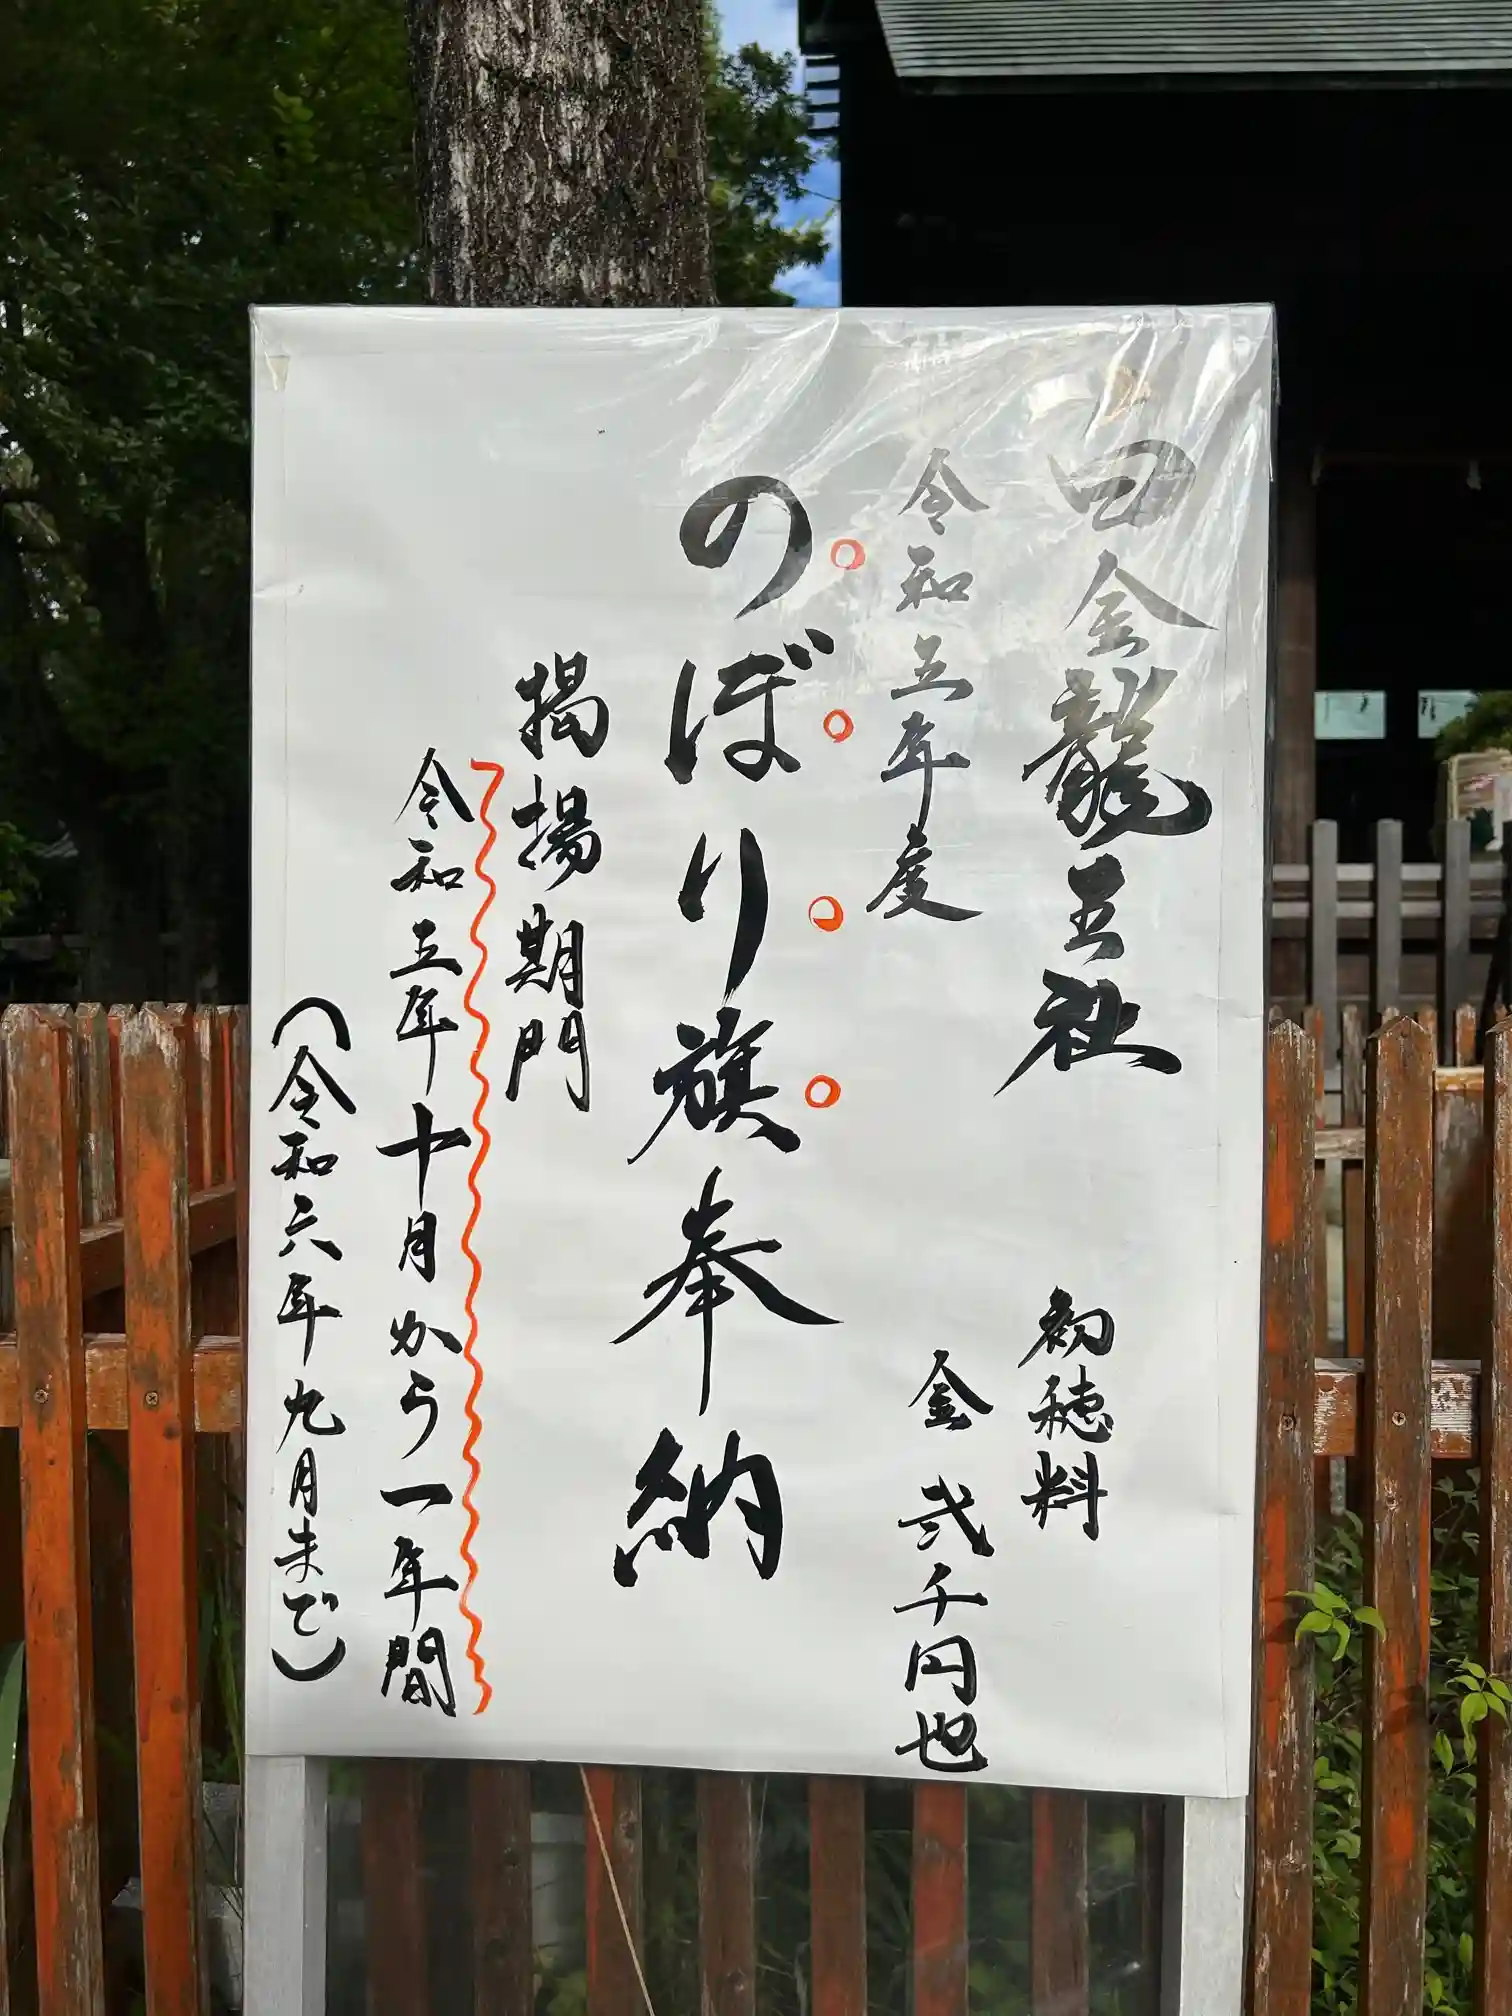 金龍王社
初穂料
令和五年度
金 弐千円也
のぼり旗奉納
掲揚期間
令和五年十月から一年間
(令和六年九月まで)